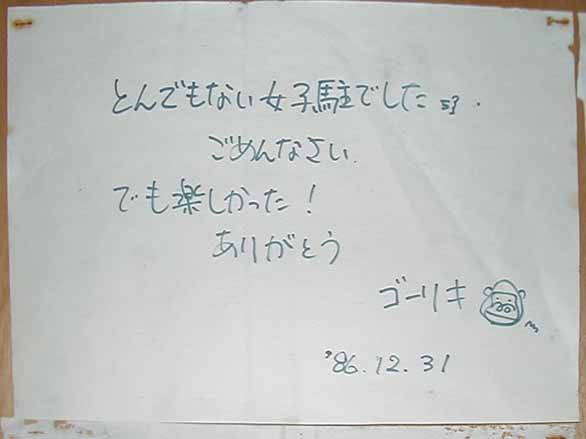 とんでもない女子駐でした
ごめんなさい.
でも楽しかった!
ありがとう
ゴーリキ
'86.12.31